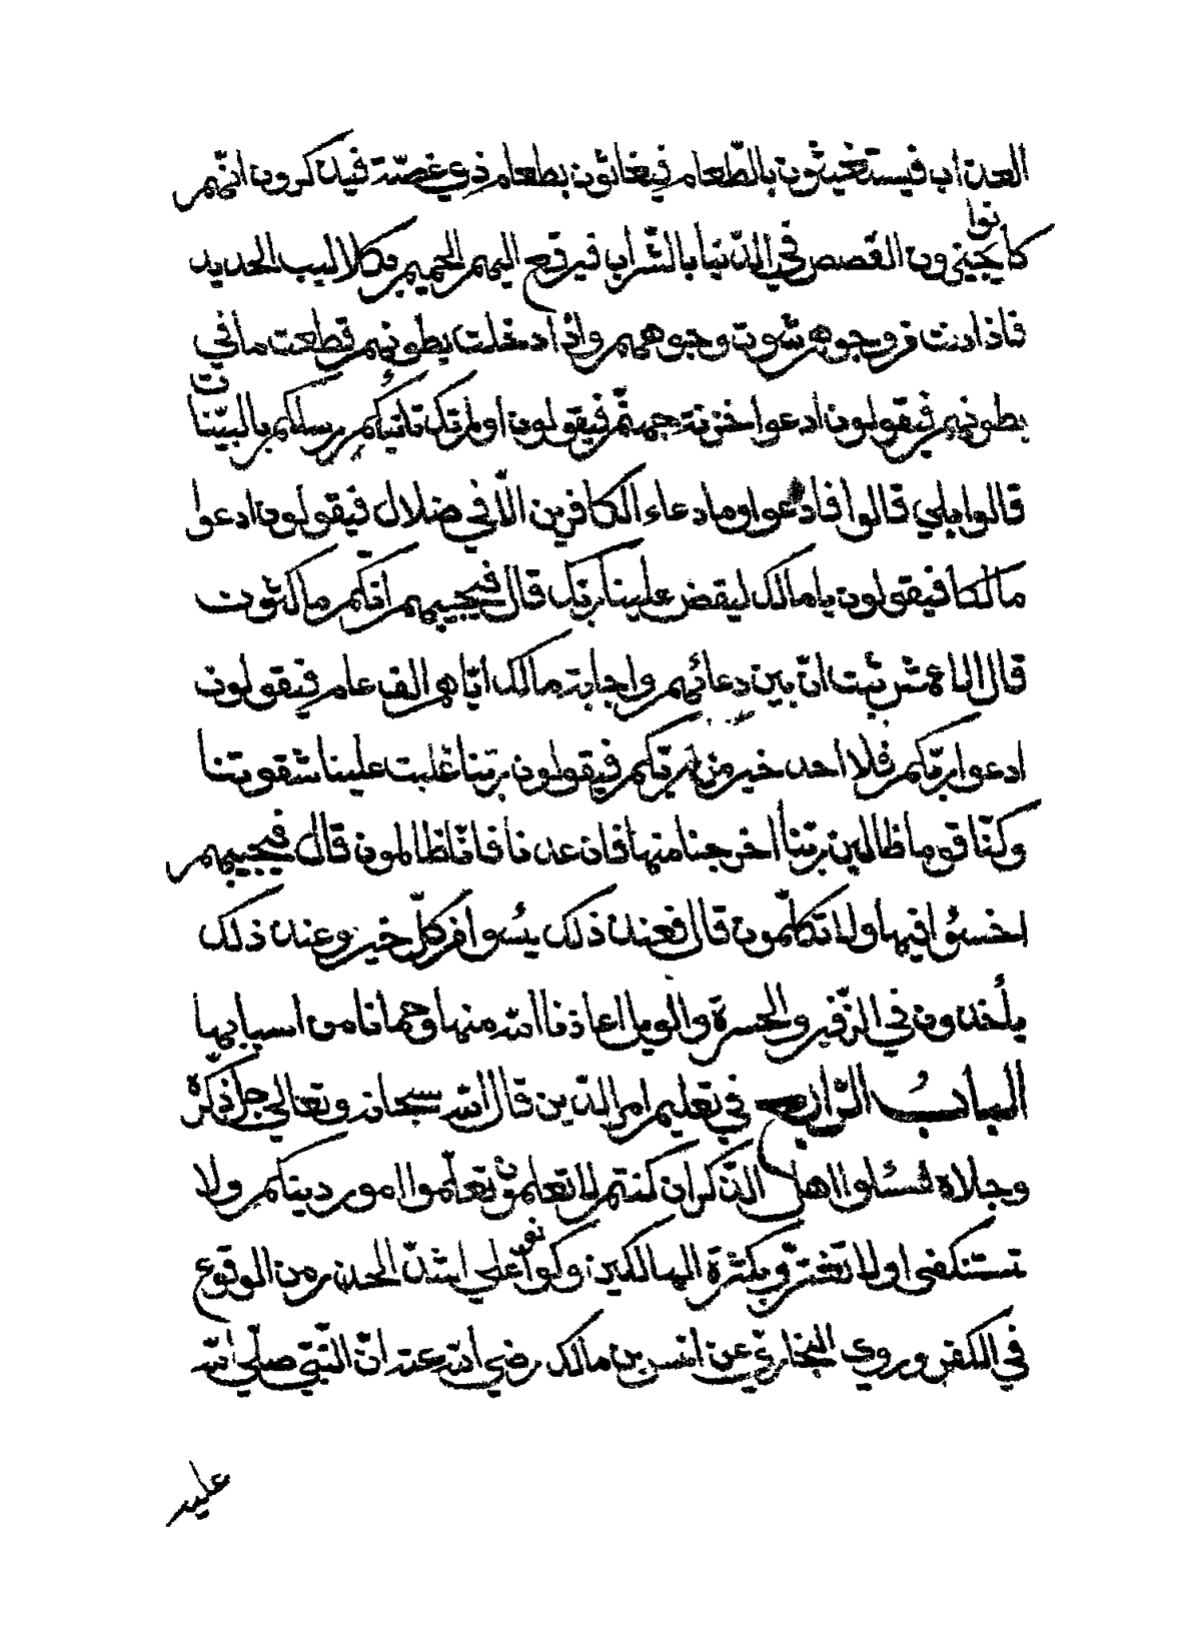 العذاب فيستغيثون بالطّعام فيغاثون بطعام ذي غصّة فيذكرون انّهم
كانوا يجيزون الغصص في الدّنيا بالشّراب فيرفع اليهم الحميم بكلاليب الحديد
فاذا دنت من وجوههم شوت وجوههم واذا دخلت بطونهم قطعت ما في
بطونهم فيقولون ادعوا خزنة جهنّم فيقولون اولم تك تأتيكم رسلكم بالبيّنات
قالوا بلي قالوا فادعوا وما دعاء الكافرين الّا في ضلال فيقولون ادعوا
مالكا فيقولون يا مالك ليقض علينا ربّك قال فيجيبهم انّكم ماكثون
قال الاعمش نبئت انّ بين دعائهم واجابة مالك ايّاهم الف عام فيقولون
ادعوا ربّكم فلا احد خير من ربّكم فيقولون ربّنا غلبت علينا شقوتنا
وكنّا قوما ظالمين ربّنا اخرجنا منها فان عدنا فانّا ظالمون قال فيجيبهم
اخسئوا فيها ولا تكلّمون قال فعند ذلك يئسوا من كلّ خير وعند ذلك
يأخذون في الزّفير والحسرة والويل اعاذنا الله منها وحمانا من اسبابها
الباب الرّابع في تعليم امر الدّين قال الله سبحانه وتعالي جلّ ذكره
وجلاله فسئلوا اهل الذّكر ان كنتم لا تعلمون تعلّموا امور دينكم ولا
تستنكفوا ولا تغترّوا بكثرة الهالكين وكونوا علي اشدّ الحذر من الوقوع
في الكفر وروي البخاري عن انس بن مالك رضي الله عنه انّ النّبيّ صلّي الله
عليه